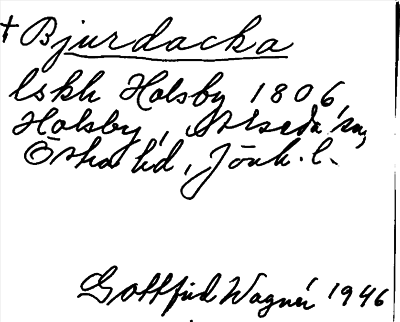 † Bjurdacka
lskh Holsby 1806,
Holsby, Alseda sn,
Östra hd, Jönk. l.
Gottfrid Wagnér 1946